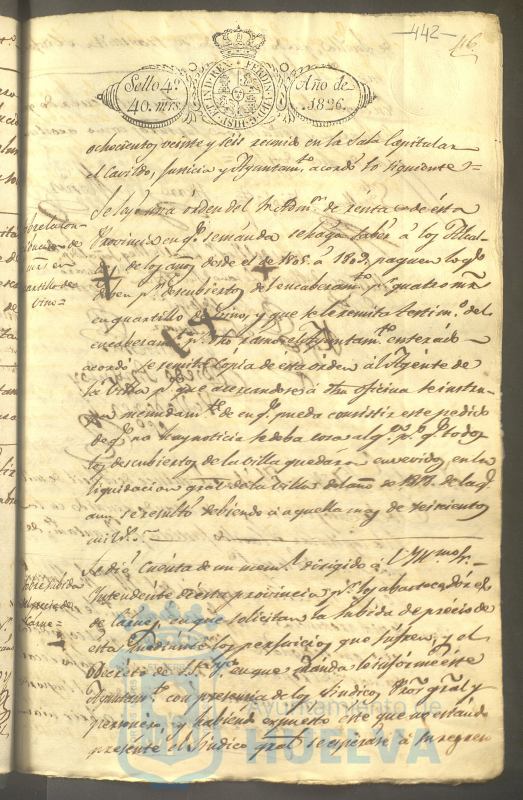 -442-
46
Sello 4º
40. mrs
HISP. ET IND. REX FERDIN. VII. D. G.
Año de
1826.
ochocientos veinte y seis reunido en la Sala Capitular
el Cavildo, Justicia y Ayuntam.to acordó lo siguiente=
Se leyó una órden del Adm.r de rentas de ésta
Provincia en q.e se manda se haga saber á los
de los años desde el de 1808 á 1809 paguen lo q.e
deven p.r descubiertos del encabezam.to p.r quatro mrs
en quartillo de vino, y que se le remita testim.o del
encabezam.to enterado
acordó se remita copia de esta órden al Agente de
la Villa p.a que acercandose á dha oficina se instru-
ya menudam.te de en q.e pueda consistir este pedido
de q.e no hay noticia se deba cosa alg.a p.r q.e todos
los descubiertos de la villa quedáron envevidos en la
liquidacion gral de la Villa del año de de la q.e
aun se resultó debiendo á aquella mas de seiscientos
mil r.s
Se dió Cuenta de un mem.l dirigido á
Intendente de ésta provincia p.r los abastecedores
de carne, en que solicitan la subida de precio de
esta mediante los perjuicios que sufren, y el
Decreto de en que manda lo informe éste
Ayuntam.to con presencia de los Sindicos Pror gral y
personero, y habiendo expuesto este que no estando
presente el Sindico gral se esperase á su regreso
sobre
mrs en
quartillo de
vino=
sobre subida
de precio de
Carne=
Ayuntamiento de
HUELVA